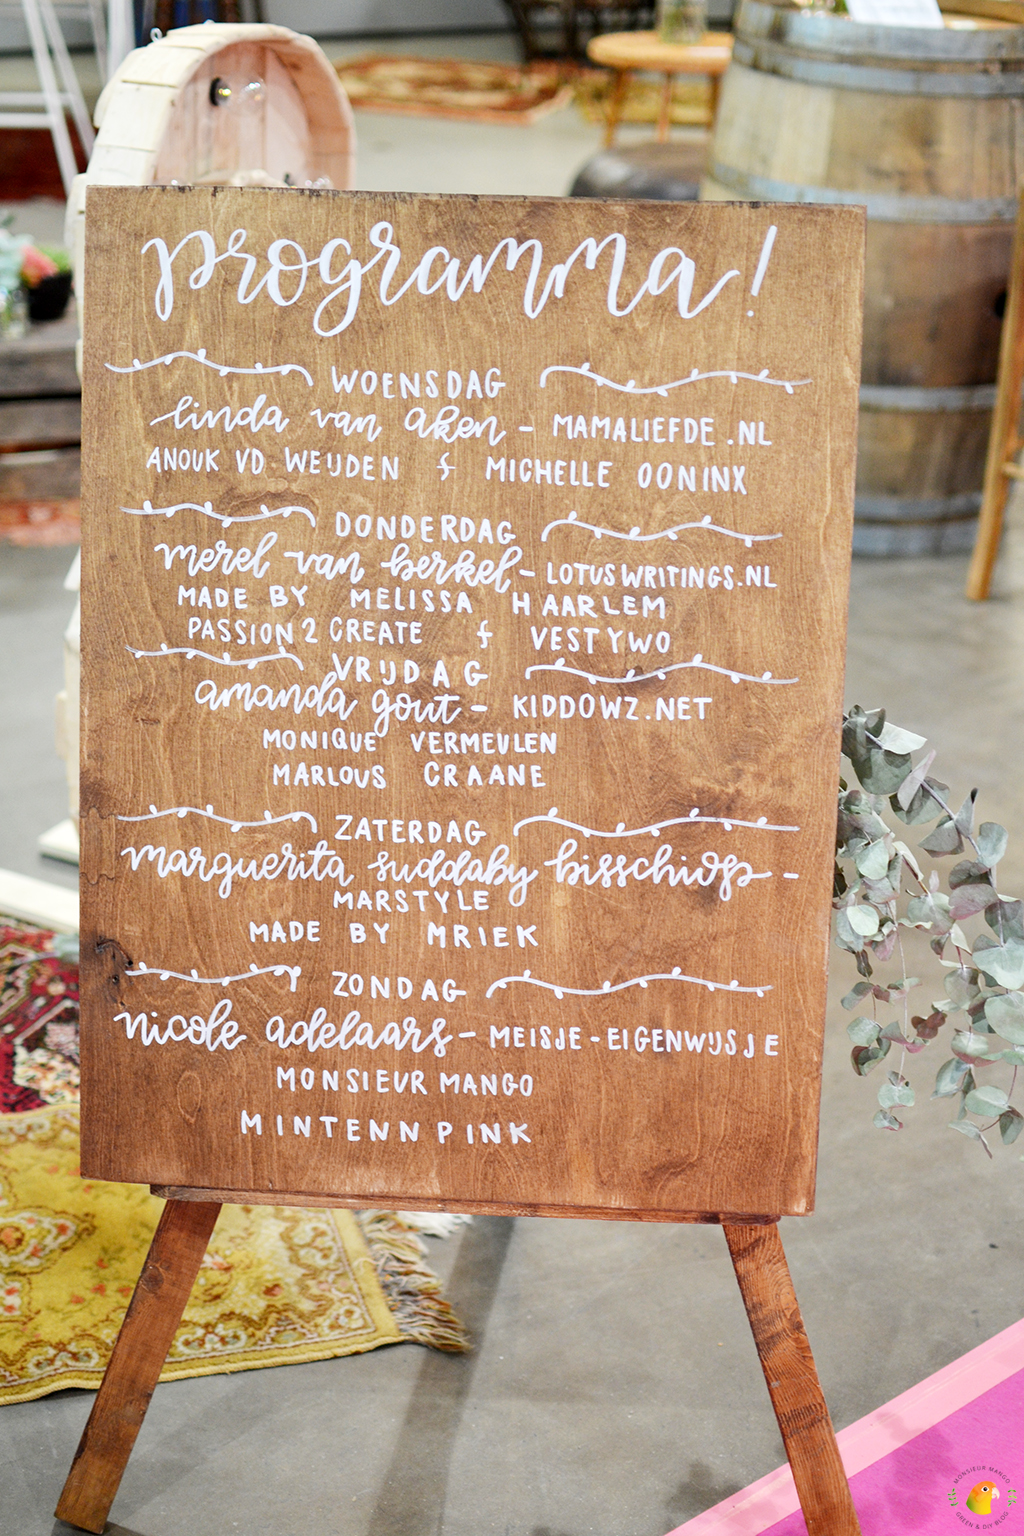 programma!
WOENSDAG
linda van aken - MAMALIEFDE.NL
ANOUK VD WEIJDEN & MICHELLE OONINX
DONDERDAG
merel van berkel - LOTUSWRITINGS.NL
MADE BY MELISSA HAARLEM
PASSION 2 CREATE & VESTYWO
VRIJDAG
amanda gout - KIDDOWZ.NET
MONIQUE VERMEULEN
MARLOUS CRAANE
ZATERDAG
marguerita suddaby bisschiop -
MARSTYLE
MADE BY MRIEK
ZONDAG
nicole adelaars - MEISJE-EIGENWIJSJE
MONSIEUR MANGO
MINTENNPINK
MONSIEUR MANGO
GREEN & DIY BLOG